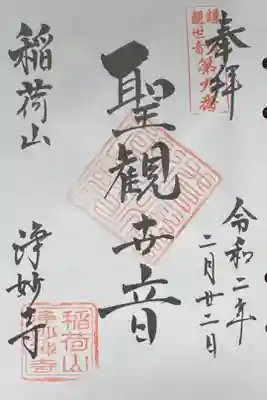 奉拝
鎌倉
観世音第九番
令和二年
二月廿二日
聖観世音
稲荷山
浄妙寺
稲荷山
浄妙寺